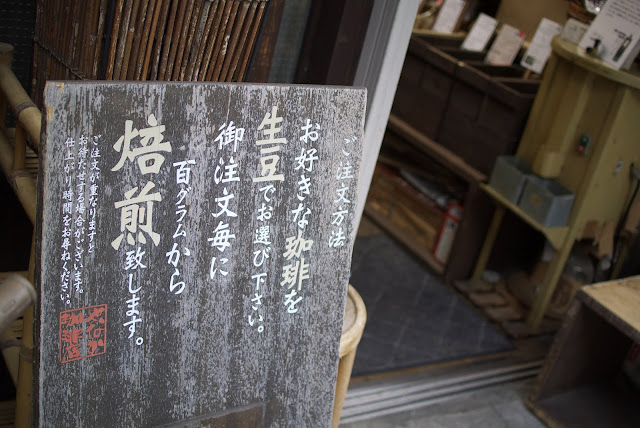 ご注文方法
お好きな珈琲を
生豆でお選び下さい。
御注文毎に
百グラムから
焙煎致します。
ご注文が重なりますと
お待たせする場合がございます。
仕上がり時間をお尋ねください。
やなか
珈琲店